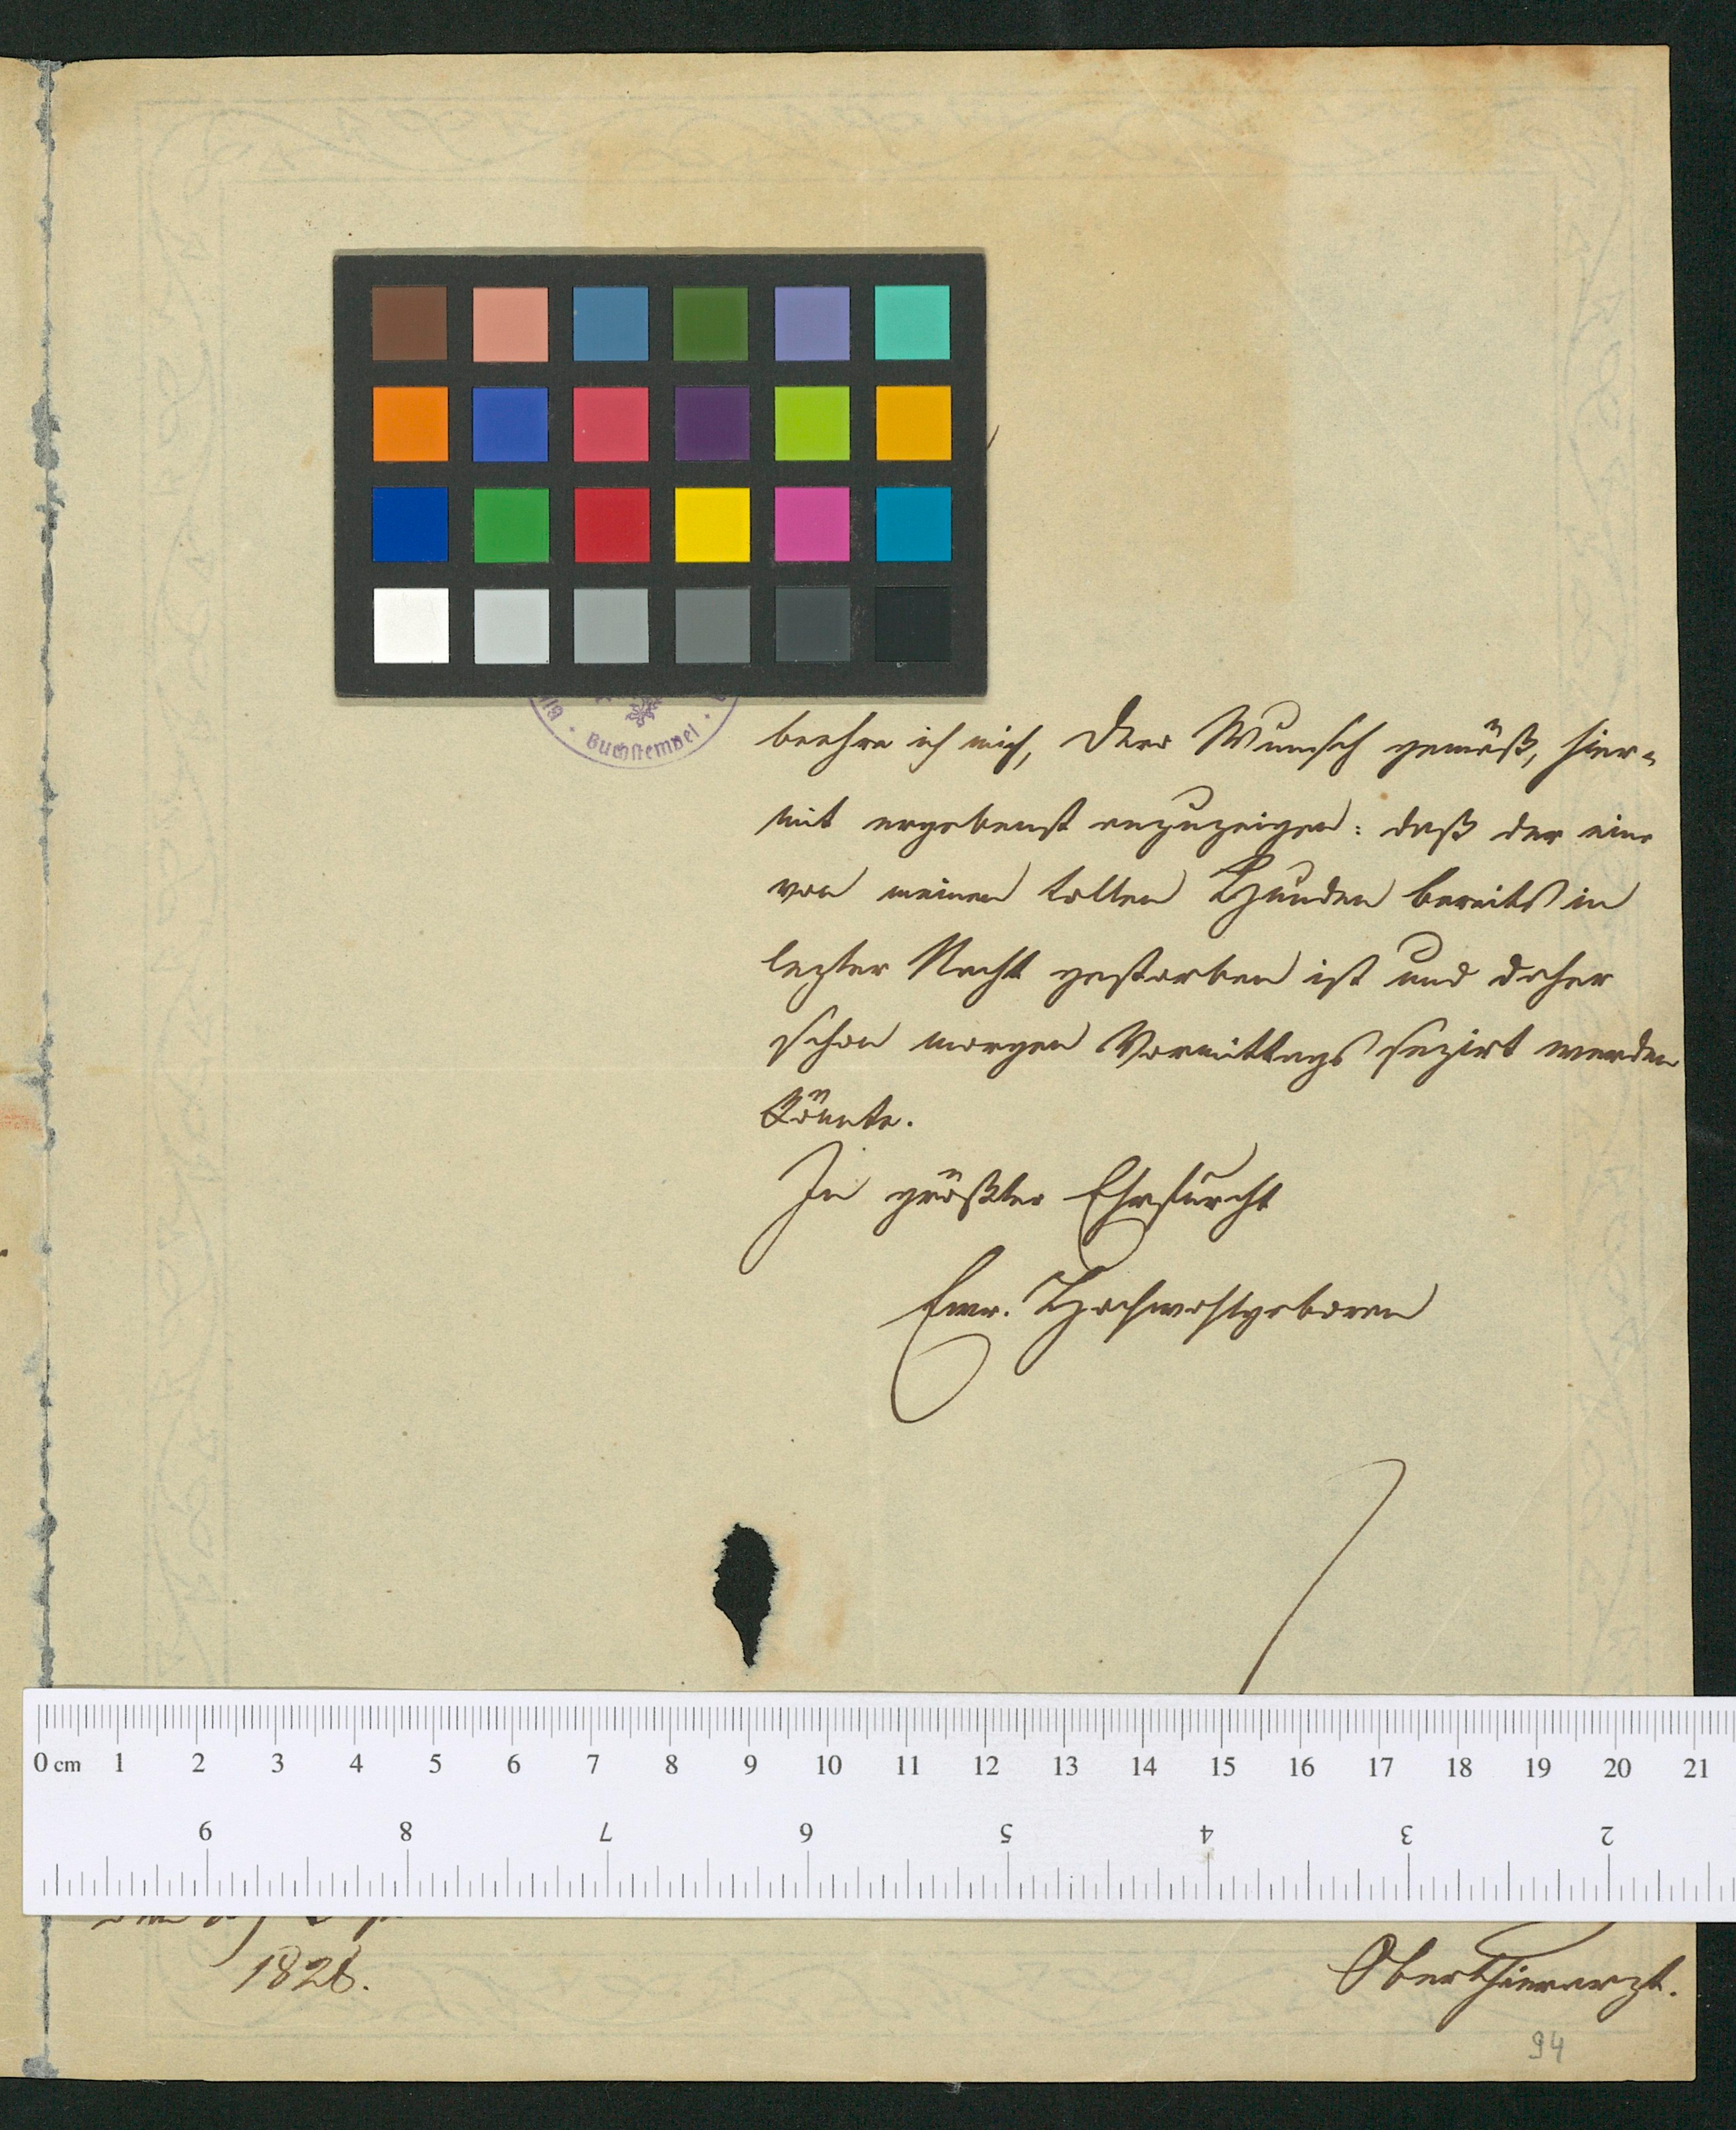 Buchstempel
beehre ich mich, Dero Wunsch gemäß, hier-
mit ergebenst anzuzeigen: daß der eine
von meinen tollen Hunden bereits in
lezter Nacht gestorben ist und daher
schon morgen Vormittags sezirt werden
könnte.
In größter Ehrfurcht
Ewr. Hochwohlgeboren
0 cm 1 2 3 4 5 6 7 8 9 10 11 12 13 14 15 16 17 18 19 20 21
9 8 7 6 5 4 3 2
1828.
Oberthierarzt.
94